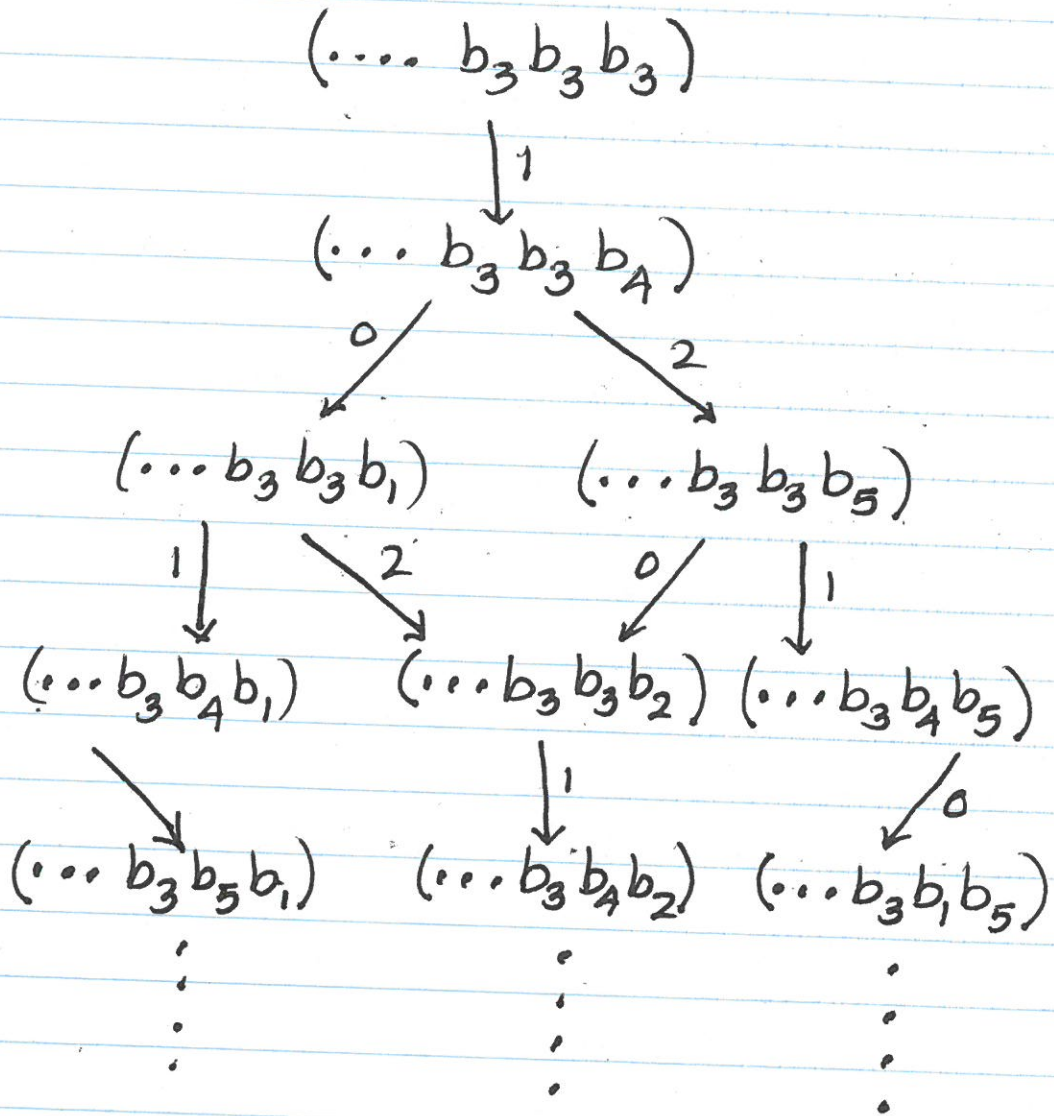 (.... b₃ b₃ b₃)
1
(... b₃ b₃ b₄)
0 2
(... b₃ b₃ b₁) (... b₃ b₃ b₅)
1 2 0 1
(... b₃ b₄ b₁) (... b₃ b₃ b₂) (... b₃ b₄ b₅)
1 0
(... b₃ b₅ b₁) (... b₃ b₄ b₂) (... b₃ b₁ b₅)